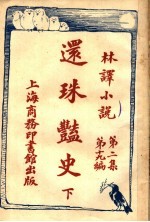 林譯小說
第二集
第十九編
還珠豔史
下
上海商務印書館出版